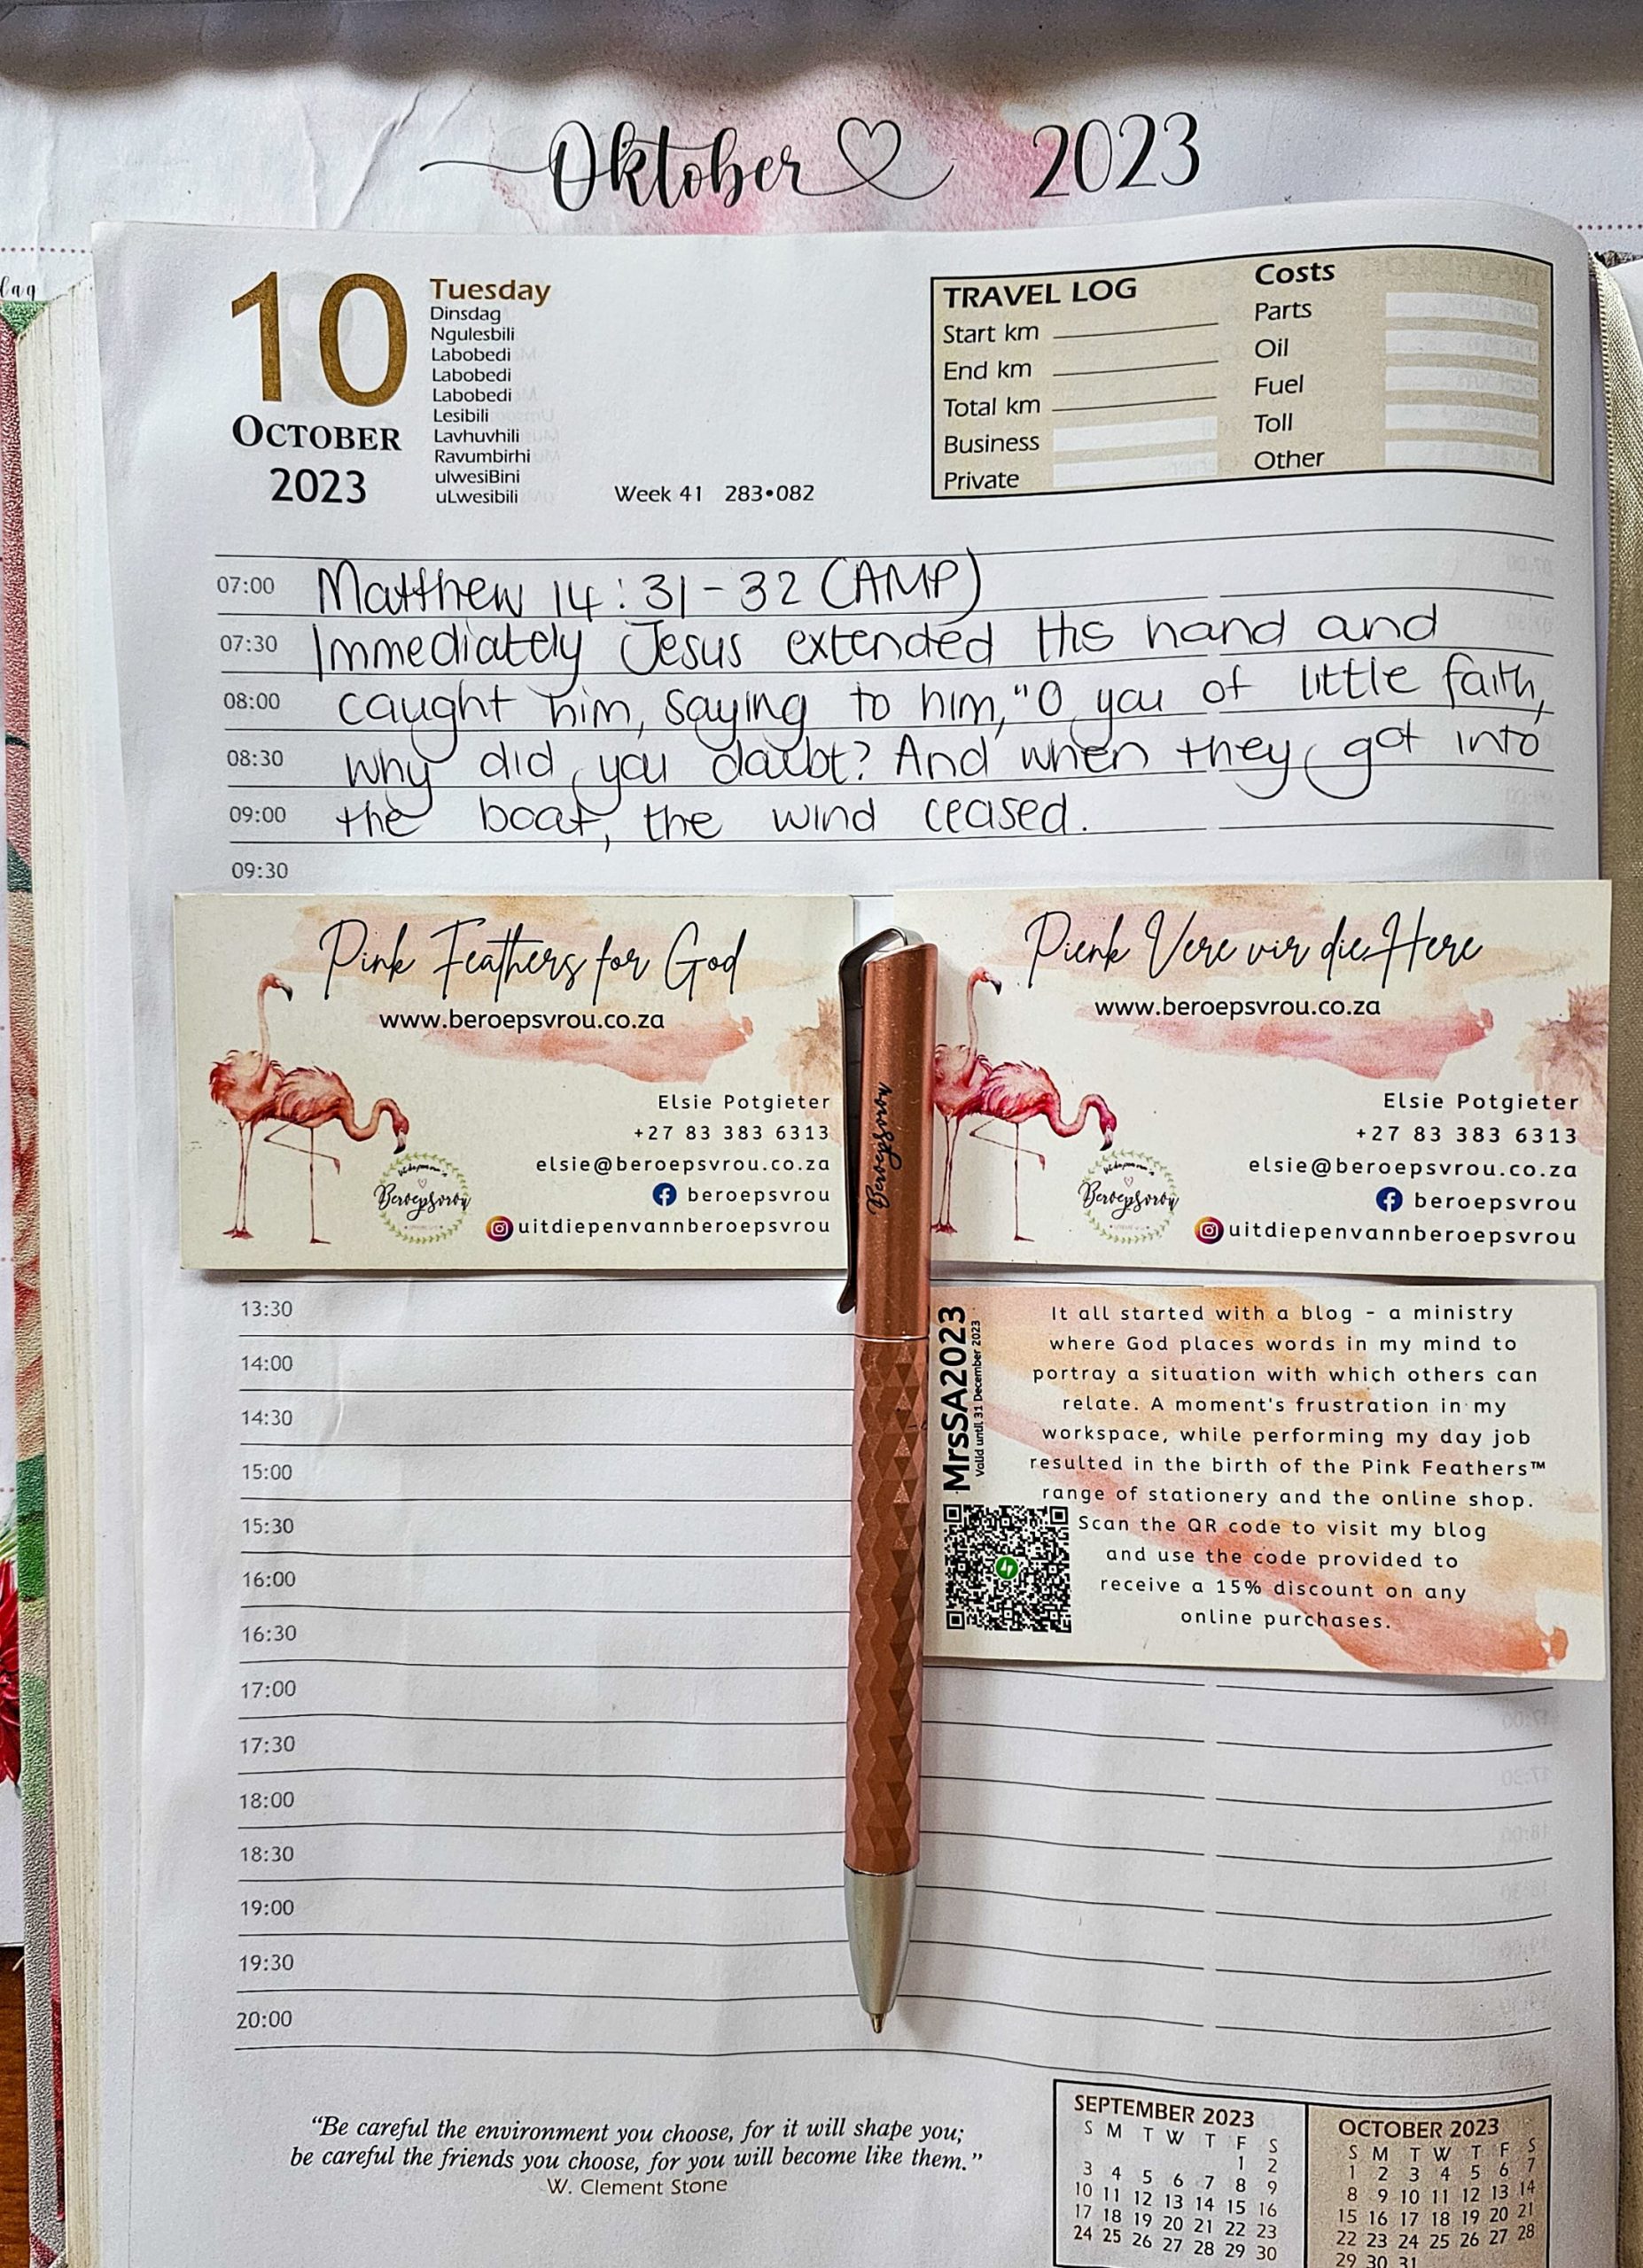 Oktober 2023
10
OCTOBER
2023
Tuesday
Dinsdag
Ngulesbili
Labobedi
Labobedi
Labobedi
Lesibili
Lavhuvhili
Ravumbirhi
ulwesiBini
uLwesibili
Week 41 283•082
TRAVEL LOG
Start km
End km
Total km
Business
Private
Costs
Parts
Oil
Fuel
Toll
Other
07:00 Matthew 14:31-32 (AMP)
07:30 Immediately Jesus extended His hand and
08:00 caught him, saying to him, "O you of little faith,
08:30 why did you doubt? And when they got into
09:00 the boat, the wind ceased.
09:30
Pink Feathers for God
www.beroepsvrou.co.za
Elsie Potgieter
+27 83 383 6313
elsie@beroepsvrou.co.za
beroepsvrou
uitdiepenvannberoepsvrou
Beroepsvrou
Beroepsvrou
Pienk Vere vir die Here
www.beroepsvrou.co.za
Elsie Potgieter
+27 83 383 6313
elsie@beroepsvrou.co.za
beroepsvrou
uitdiepenvannberoepsvrou
Beroepsvrou
MrsSA2023
Valid until 31 December 2023
It all started with a blog - a ministry
where God places words in my mind to
portray a situation with which others can
relate. A moment's frustration in my
workspace, while performing my day job
resulted in the birth of the Pink Feathers™
range of stationery and the online shop.
Scan the QR code to visit my blog
and use the code provided to
receive a 15% discount on any
online purchases.
13:30
14:00
14:30
15:00
15:30
16:00
16:30
17:00
17:30
18:00
18:30
19:00
19:30
20:00
"Be careful the environment you choose, for it will shape you;
be careful the friends you choose, for you will become like them."
W. Clement Stone
SEPTEMBER 2023
S M T W T F S
1 2
3 4 5 6 7 8 9
10 11 12 13 14 15 16
17 18 19 20 21 22 23
24 25 26 27 28 29 30
OCTOBER 2023
S M T W T F S
1 2 3 4 5 6 7
8 9 10 11 12 13 14
15 16 17 18 19 20 21
22 23 24 25 26 27 28
29 30 31